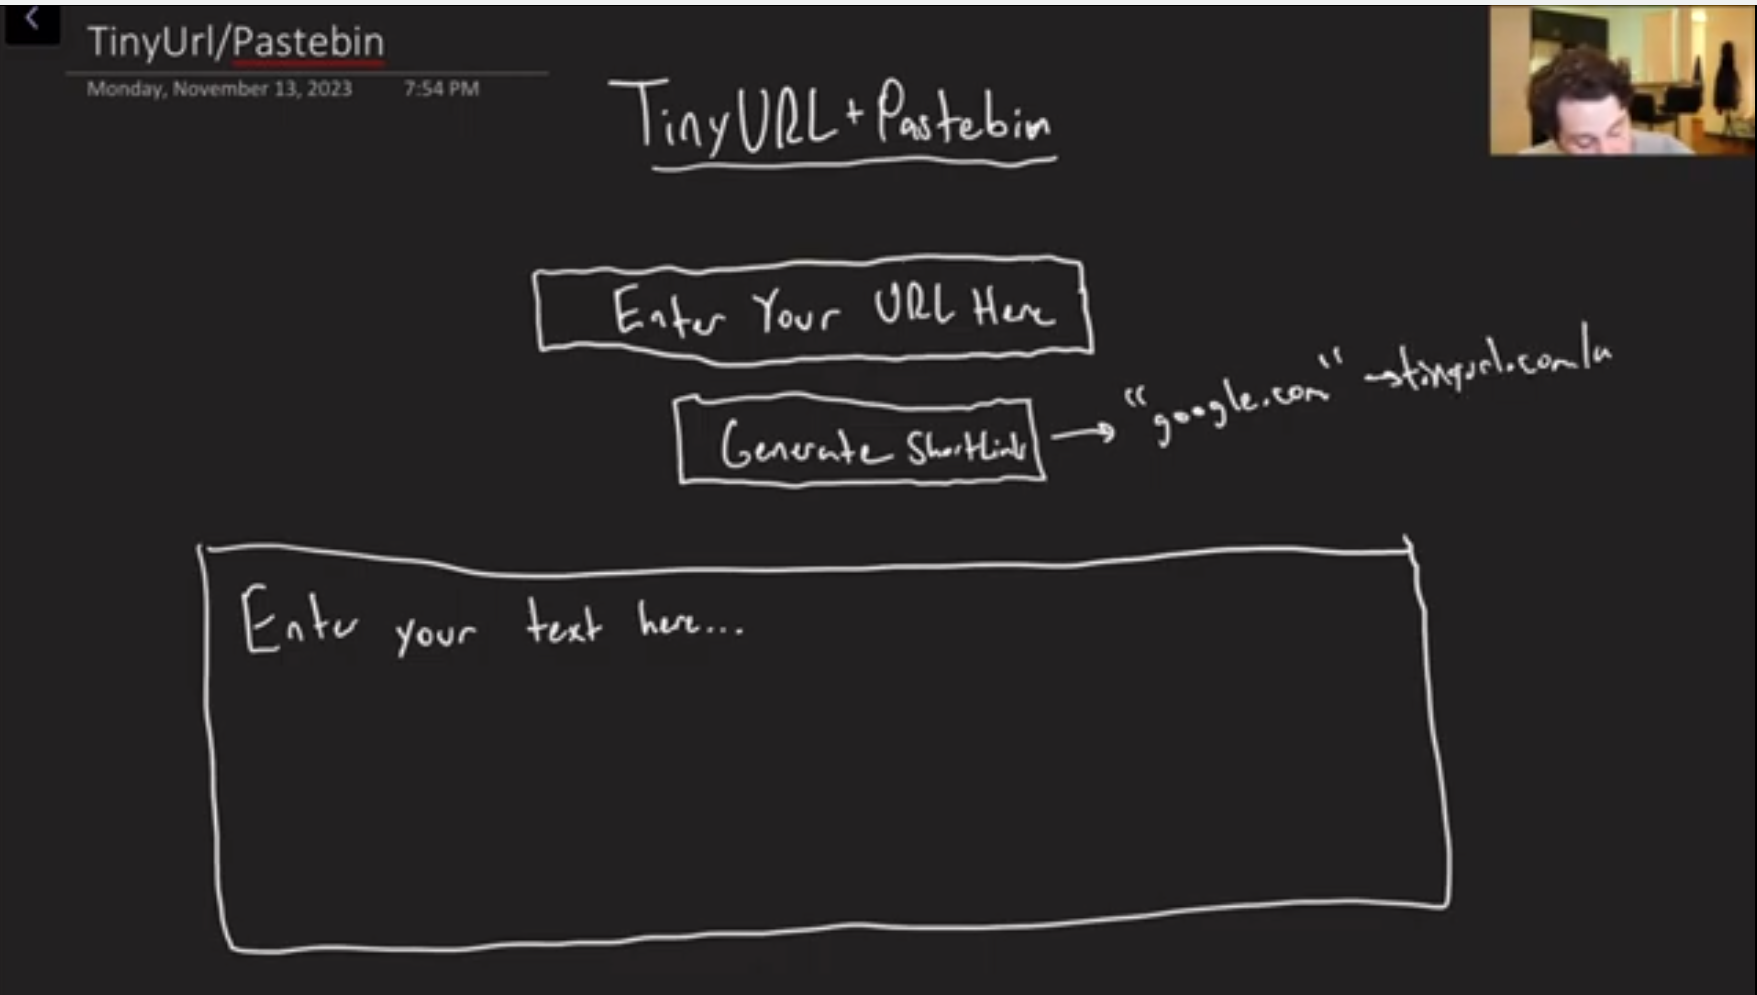 TinyUrl/Pastebin
Monday, November 13, 2023 7:54 PM
TinyURL + Pastebin
Enter Your URL Here
Generate ShortLink → "google.com" → tinyurl.com/
Enter your text here...